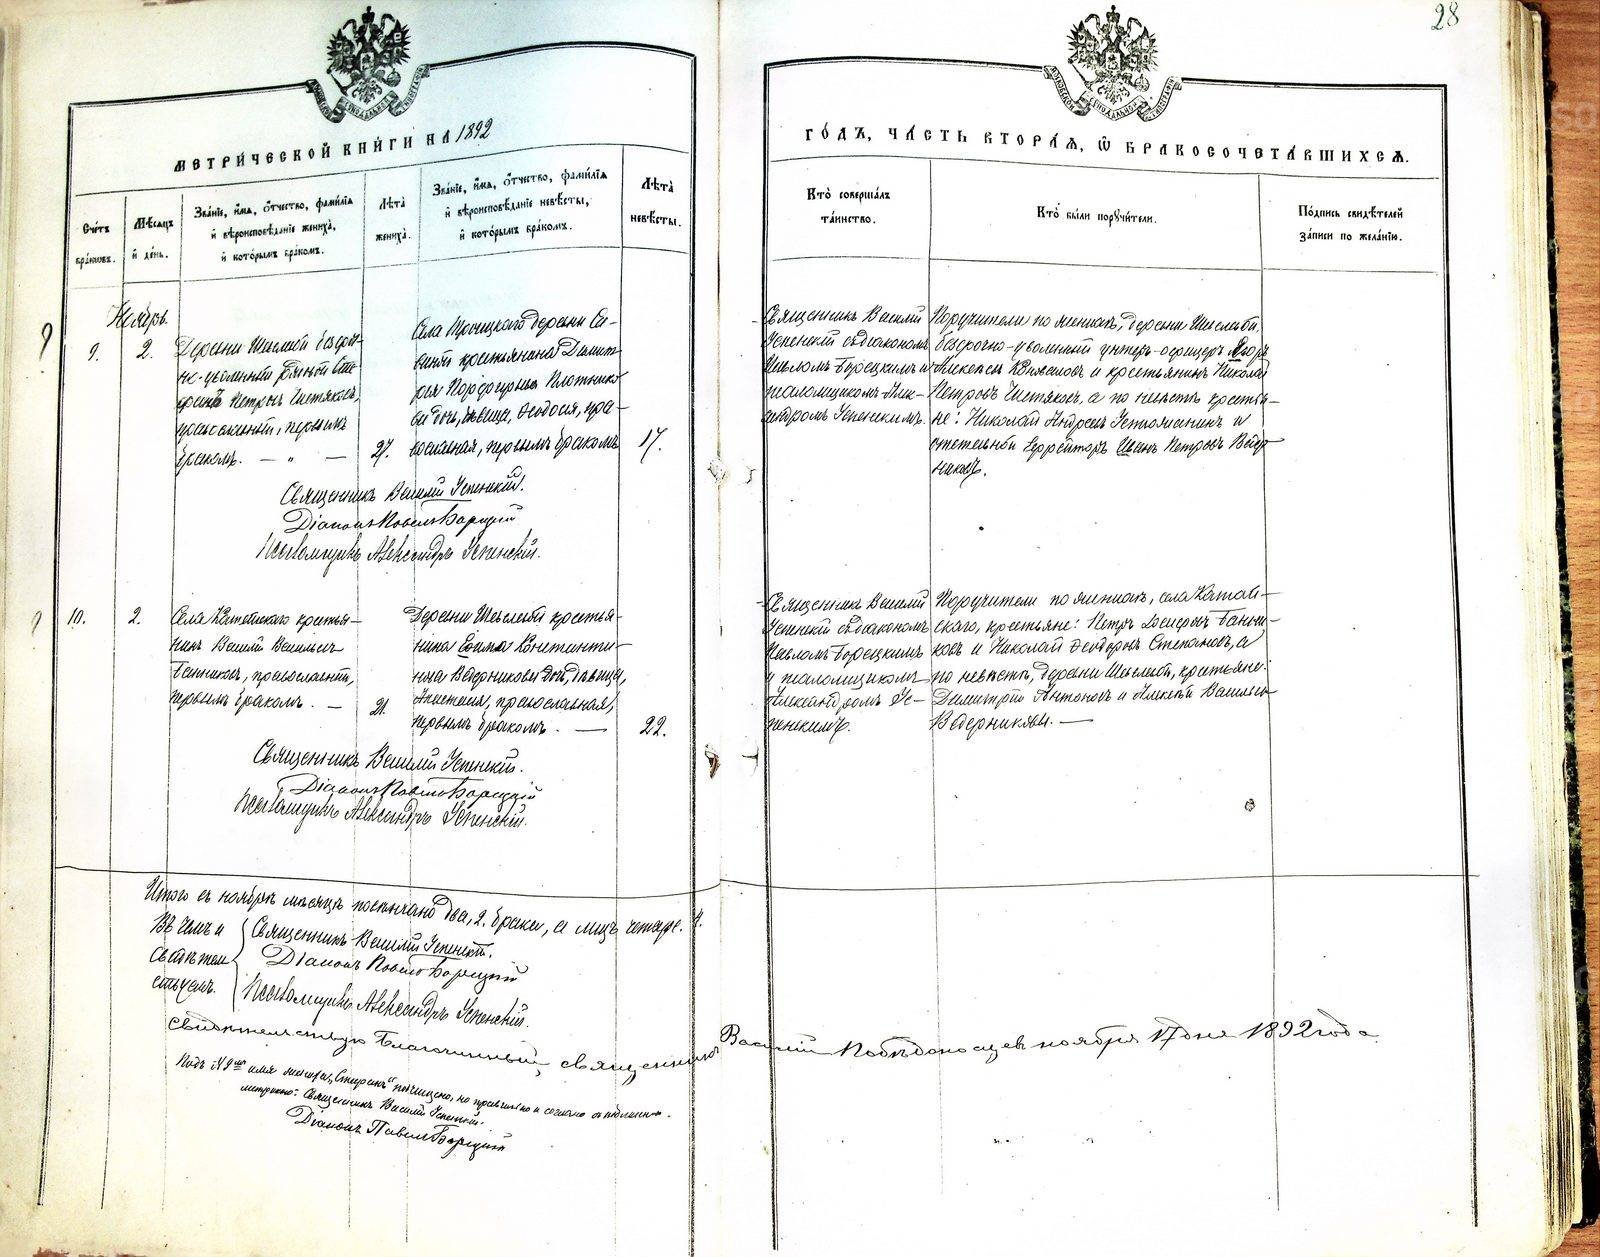 28
МЕТРИ́ЧЕСКОЙ КНИ́ГИ НА 1892
ГО́ДЪ, ЧА́СТЬ ВТОРА́Я, Ѡ БРАКОСОЧЕТА́ВШИХСЯ.
Сче́тъ бра́ковъ.
Мѣ́сяцъ и де́нь.
Зва́нїе, и́мя, ѻ́тчество, фами́лїя
и вѣроисповѣ́данїе жениха́,
и кото́рымъ бра́комъ.
Лѣ́та жениха́.
Зва́нїе, и́мя, ѻ́тчество, фами́лїя
и вѣроисповѣ́данїе невѣ́сты,
и кото́рымъ бра́комъ.
Лѣ́та невѣ́сты.
Кто̀ соверша́лъ
та́инство.
Кто̀ бы́ли поручи́тели.
По́дпись свидѣ́телей
за́писи по жела́нїю.
Ноябрь.
9.
2.
Деревни Шаблыкъ
Петровъ Чистяковъ,
православный, первымъ
бракомъ. — „ —
27.
Села Троицкаго деревни
крестьянина Димит-
рія Порфирьева Плотнико-
ва дочь, дѣвица, Ѳеодосія, пра-
вославная, первымъ бракомъ
17.
Священникъ Василій
Успенскій съ діакономъ
Павломъ Борецкимъ и
псаломщикомъ Алек-
сандромъ Успенскимъ.
Поручители по женихѣ, деревни
безсрочно-уволенный унтеръ-офицеръ
и крестьянинъ Николай
Петровъ Чистяковъ, а по невѣстѣ крестья-
не: Николай Андреевъ и
ефрейторъ Иванъ Петровъ Ведер-
никовъ.
Священникъ Василій Успенскій.
Діаконъ Павелъ Борецкій
Псаломщикъ Александръ Успенскій.
10.
2.
Села крестья-
нинъ Василій Васильевъ
Банниковъ, православный,
первымъ бракомъ. —
21.
Деревни крестья-
нина Ефима Константи-
нова Ведерникова дочь, дѣвица,
православная,
первымъ бракомъ. —
22.
Священникъ Василій
Успенскій съ діакономъ
Павломъ Борецкимъ
и псаломщикомъ
Александромъ Ус-
пенскимъ.
Поручители по женихѣ, села Катай-
скаго, крестьяне: Петръ Банни-
ковъ и Николай Ѳеодоровъ Степановъ, а
по невѣстѣ, деревни крестьяне:
Димитрій Антоновъ и Алексѣй Васильевъ
Ведерниковы. —
Священникъ Василій Успенскій.
Діаконъ Павелъ Борецкій
Псаломщикъ Александръ Успенскій.
Итого въ ноябрѣ мѣсяцѣ повѣнчано два, 2. брака, а лицъ четыре. 4.
Въ чемъ и
свидѣтель-
ствуемъ.
Священникъ Василій Успенскій.
Діаконъ Павелъ Борецкій
Псаломщикъ Александръ Успенскій.
Свидѣтельствую Благочинный, священникъ Василій Побѣдоносцев ноября 17 дня 1892 года
Подъ № 9мъ имя подчищено, но правильно и согласно съ
Священникъ Василій Успенскій.
Діаконъ Павелъ Борецкій